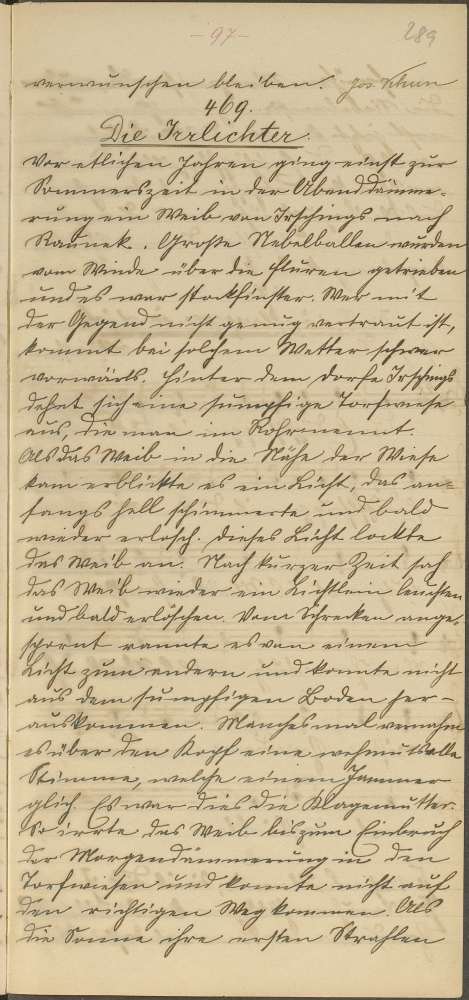 - 97 -
289
verwunschen bleiben. Jos. Thun
469.
Die Irrlichter.
Vor etlichen Jahren ging einst zur
Sommerszeit in der Abenddämme-
rung ein Weib von Irschings nach
Raunek. Große Nebelballen wurden
vom Winde über die Fluren getrieben
und es war stockfinster. Wer mit
der Gegend nicht genug vertraut ist,
kommt bei solchem Wetter schwer
vorwärts. Hinter dem Dorfe Irschings
dehnt sich eine sumpfige Torfwiese
aus, die man im Rohr nennt.
Als das Weib in die Nähe der Wiese
kam erblickte es ein Licht, das an-
fangs hell schimmerte und bald
wieder erlosch. Dieses Licht lockte
das Weib an. Nach kurzer Zeit sah
das Weib wieder ein Lichtlein leuchten
und bald erlöschen. Vom Schrecken ange-
spornt rannte es von einem
Licht zum andern und konnte nicht
aus dem sumpfigen Boden her-
auskommen. Manchesmal vernahm
es über den Kopf eine wehmutsvolle
Stimme, welche einem Jammer
glich. Es war dies die Klagemutter.
So irrte das Weib bis zum Einbruch
der Morgendämmerung in den
Torfwiesen und konnte nicht auf
den richtigen Weg kommen. Als
die Sonne ihre ersten Strahlen